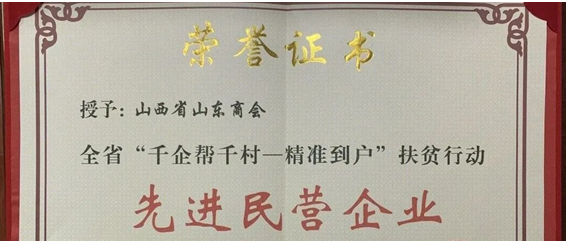 荣誉证书
授予：山西省山东商会
全省“千企帮千村—精准到户”扶贫行动
先进民营企业